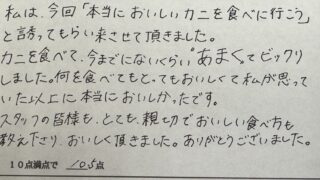 私は、今回「本当においしいカニを食べに行こう」
と誘ってもらい来させて頂きました。
カニを食べて、今までにないくらい“あまくてビックリ
しました。何を食べてもとってもおいしくて私が思って
いた以上に本当においしかったです。
スタッフの皆様も、とても親切でおいしい食べ方も
教え下さり、おいしく頂きました。ありがとうございました。
10点満点で 105点